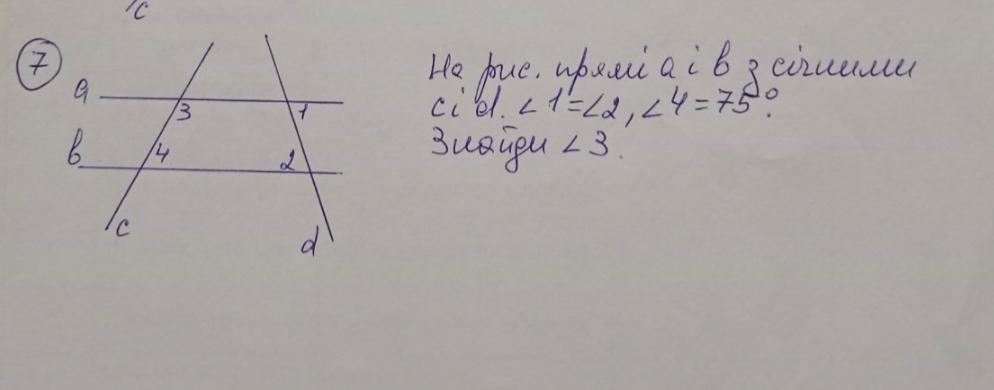 c
7
a
3
1
b
4
2
c
d
На рис. прямі a і b з січними
c і d. ∠1=∠2, ∠4=75°.
Знайди ∠3.